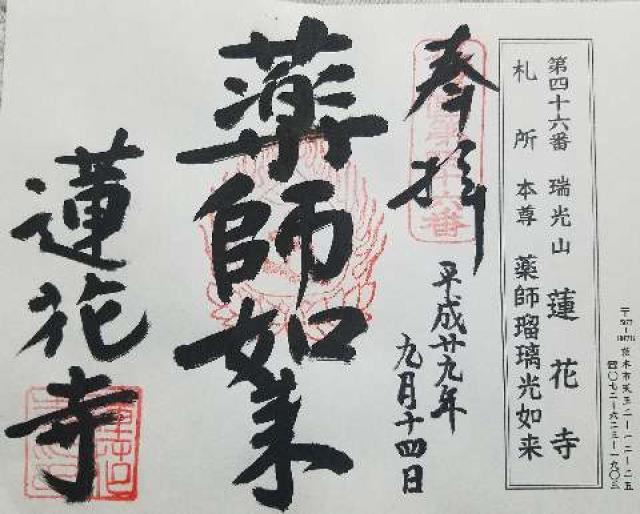 第四十六番 瑞光山 蓮花寺
札所本尊 薬師瑠璃光如来
奉拝
平成廿九年
九月十四日
薬師如来
蓮花寺